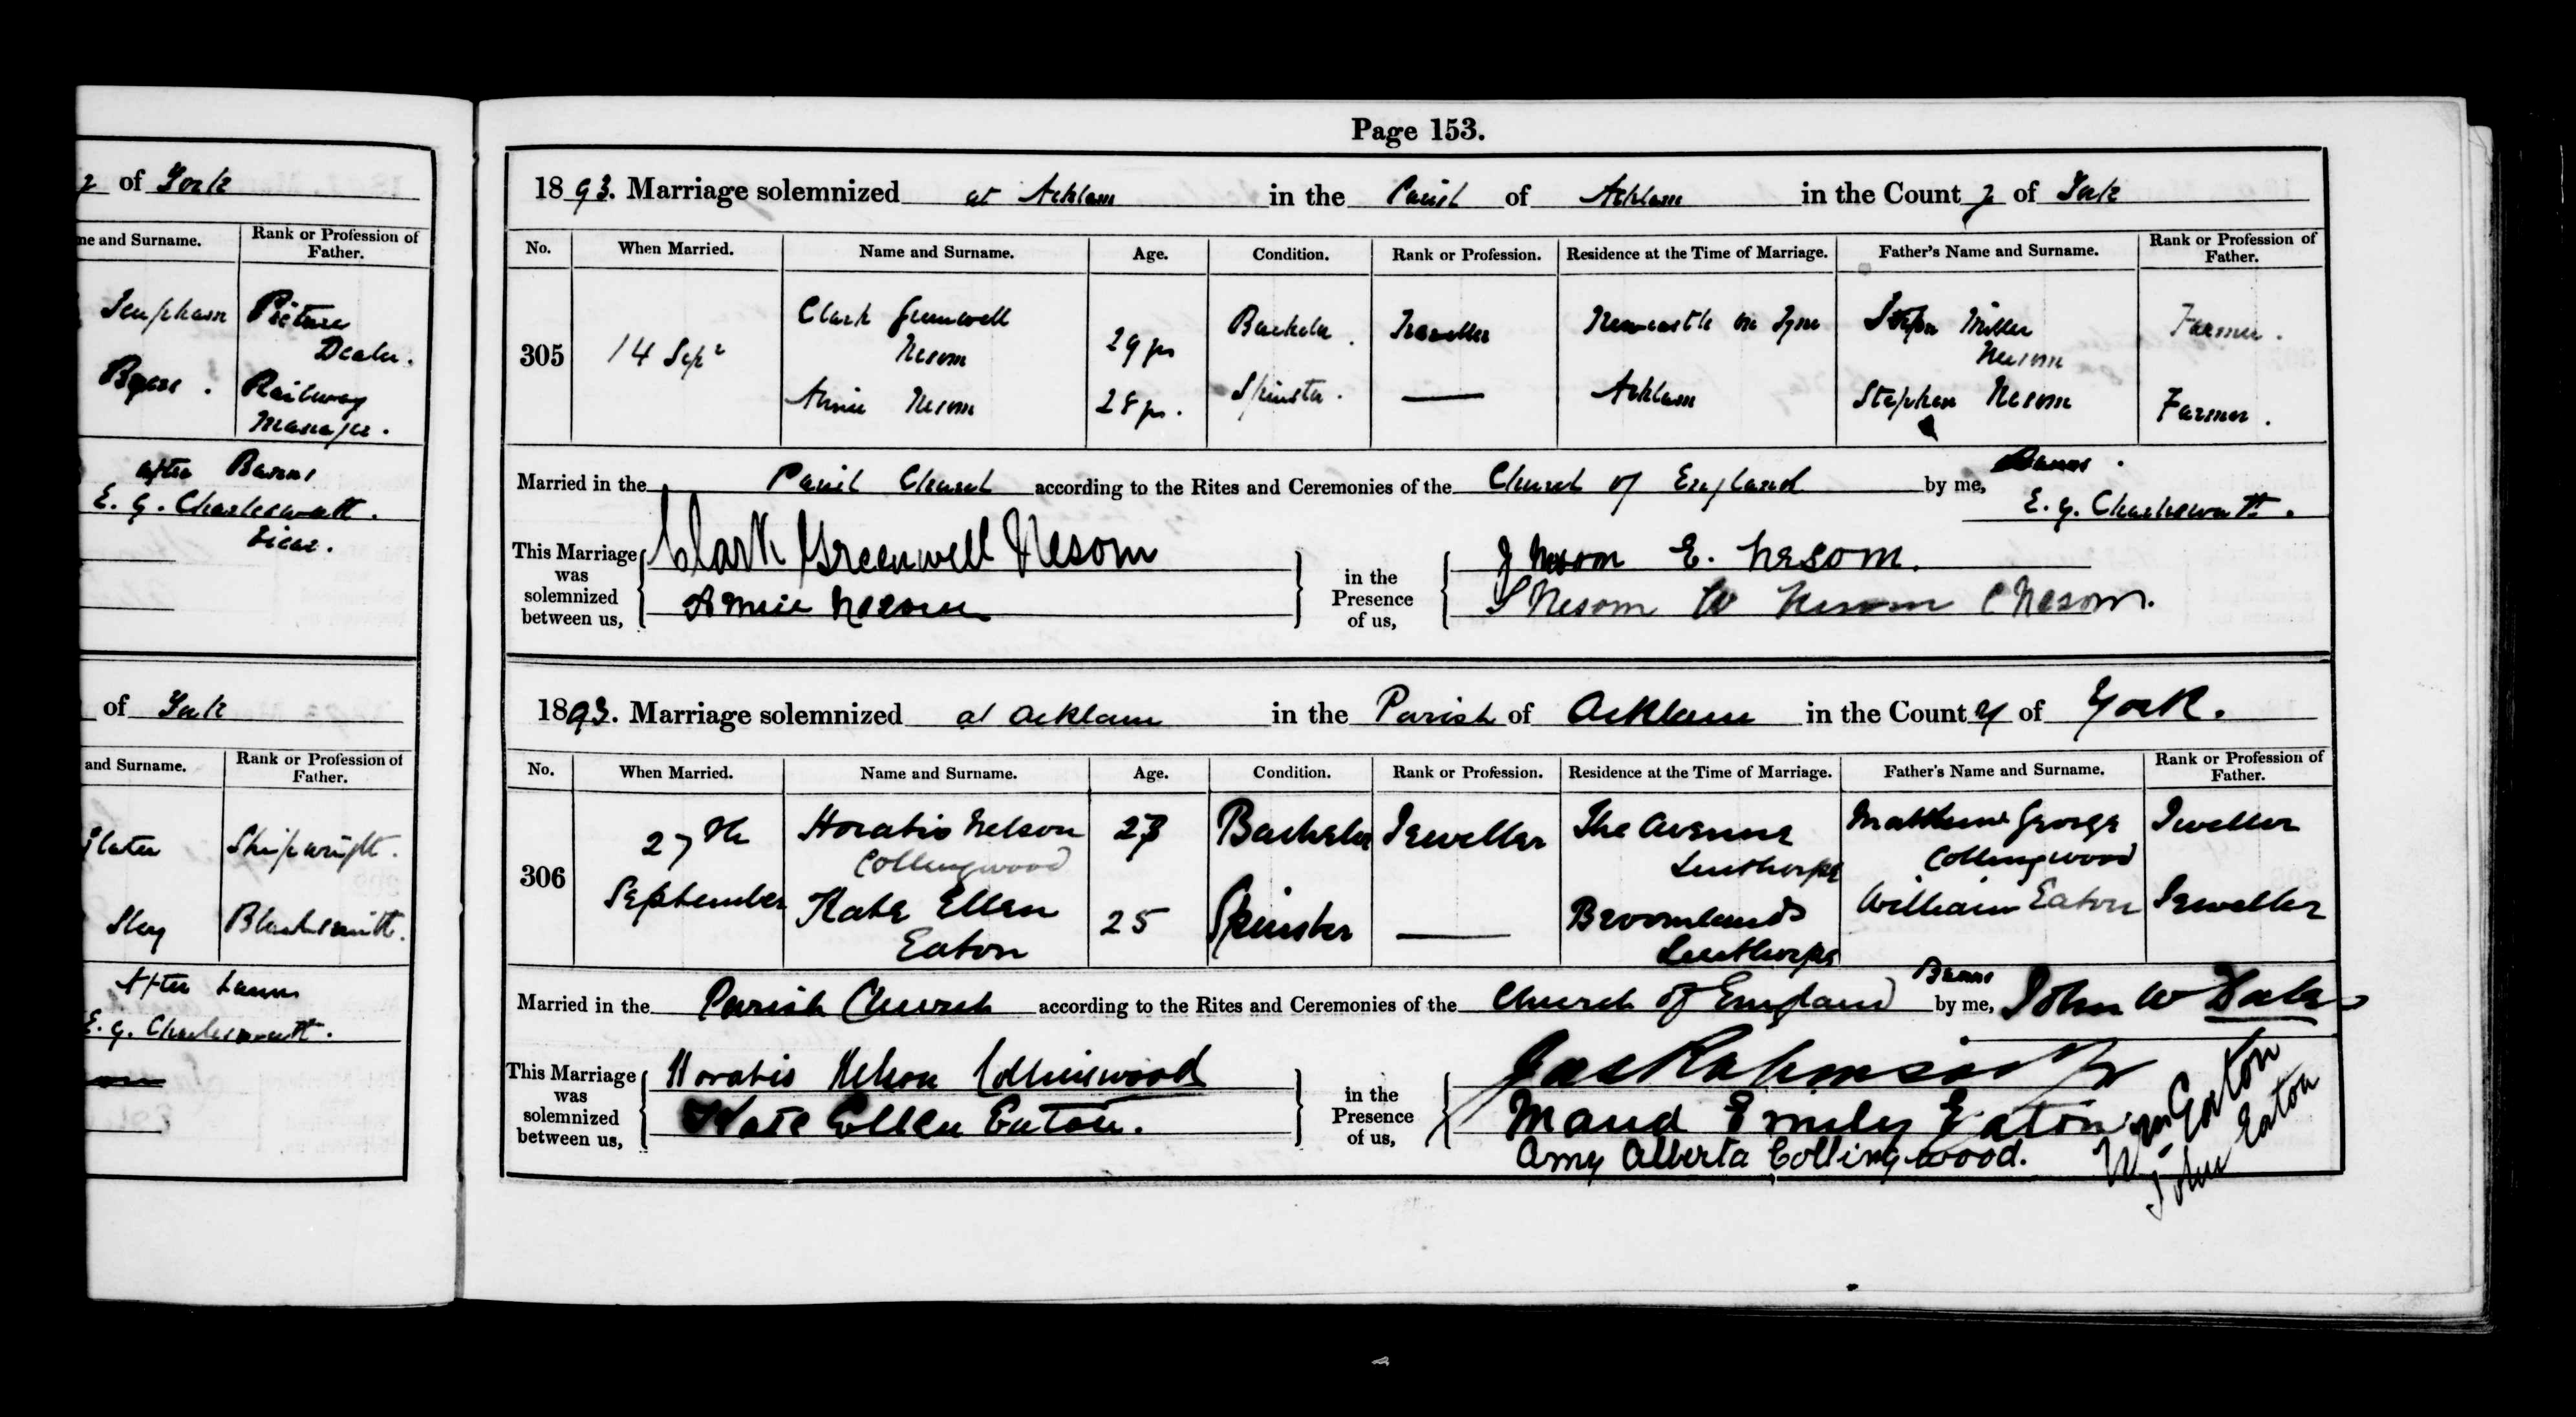 of York
ne and Surname. Rank or Profession of Father.
Picture
Dealer.
Railway
Manager.
after Banns
E. G. Charlesworth.
Vicar.
of York
and Surname. Rank or Profession of Father.
Slater Shipwright.
Sley Blacksmith.
After Banns
E. G. Charlesworth.
Page 153.
1893. Marriage solemnized at Acklam in the Parish of Acklam in the County of York
No. When Married. Name and Surname. Age. Condition. Rank or Profession. Residence at the Time of Marriage. Father's Name and Surname. Rank or Profession of Father.
305 14 Sept Clark Greenwell Nesom 29 yrs Bachelor. Traveller Newcastle on Tyne Miller Nesom Farmer.
Annie Nesom 28 yrs. Spinster. — Acklam Stephen Nesom Farmer.
Married in the Parish Church according to the Rites and Ceremonies of the Church of England Banns. by me, E. G. Charlesworth.
This Marriage was solemnized between us, Clark Greenwell Nesom
Annie Nesom
in the Presence of us, J Nesom E. Nesom.
S Nesom W Nesom C Nesom.
1893. Marriage solemnized at Acklam in the Parish of Acklam in the County of York.
No. When Married. Name and Surname. Age. Condition. Rank or Profession. Residence at the Time of Marriage. Father's Name and Surname. Rank or Profession of Father.
306 27th September Horatio Nelson Collingwood Bachelor Jeweller The Avenue Linthorpe Matthew George Collingwood Jweller
Kate Ellen Eaton 25 Spinster — Broomlands Linthorpe William Eaton Jeweller
Married in the Parish Church according to the Rites and Ceremonies of the Church of England Banns by me, John W Dales
This Marriage was solemnized between us, Horatio Nelson Collingwood
Kate Ellen Eaton.
in the Presence of us,
Maud Emily Eaton
Amy Alberta Collingwood.
Wm Eaton
John Eaton